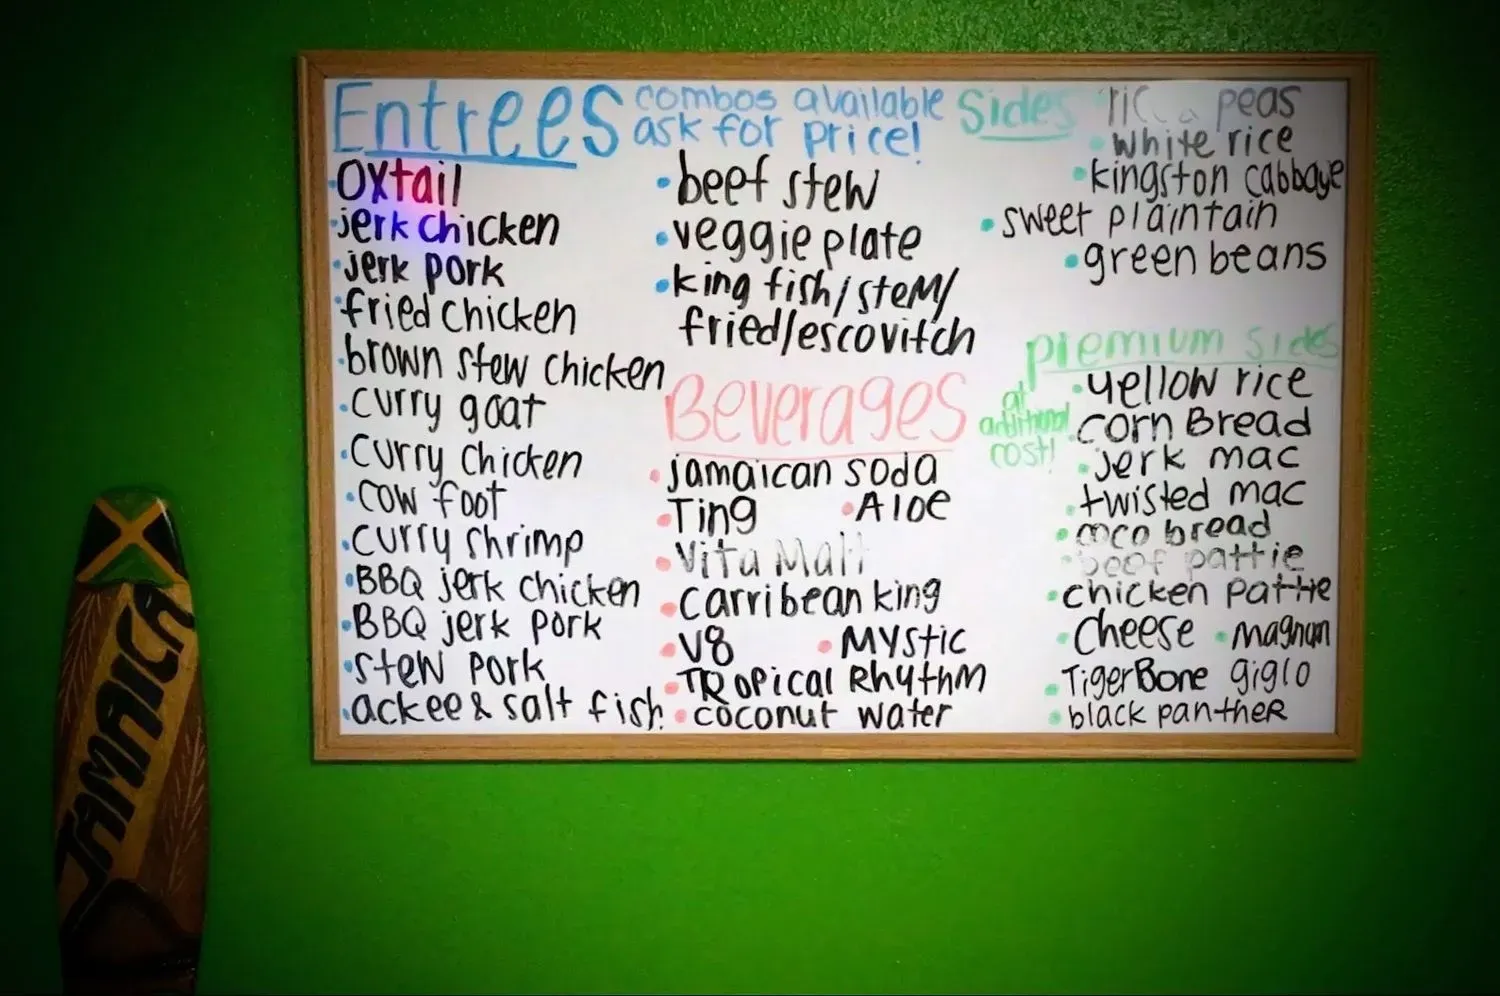 Entrees combos available
ask for price!
oxtail
jerk chicken
jerk pork
fried chicken
brown stew chicken
curry goat
curry chicken
cow foot
curry shrimp
BBQ jerk chicken
BBQ jerk pork
stew pork
ackee & salt fish
beef stew
veggie plate
king fish/steM/
fried/escovitch
Beverages
jamaican soda
Ting
Aloe
Vita Malt
carribean king
V8
Mystic
TRopical Rhythm
coconut water
Sides
peas
white rice
kingston cabbage
sweet plaintain
green beans
premium sides
at
additional
cost!
yellow rice
corn Bread
jerk mac
twisted mac
coco bread
beef pattie
chicken pattie
cheese
magnum
TigerBone giglo
black pantheR
JAMAICA